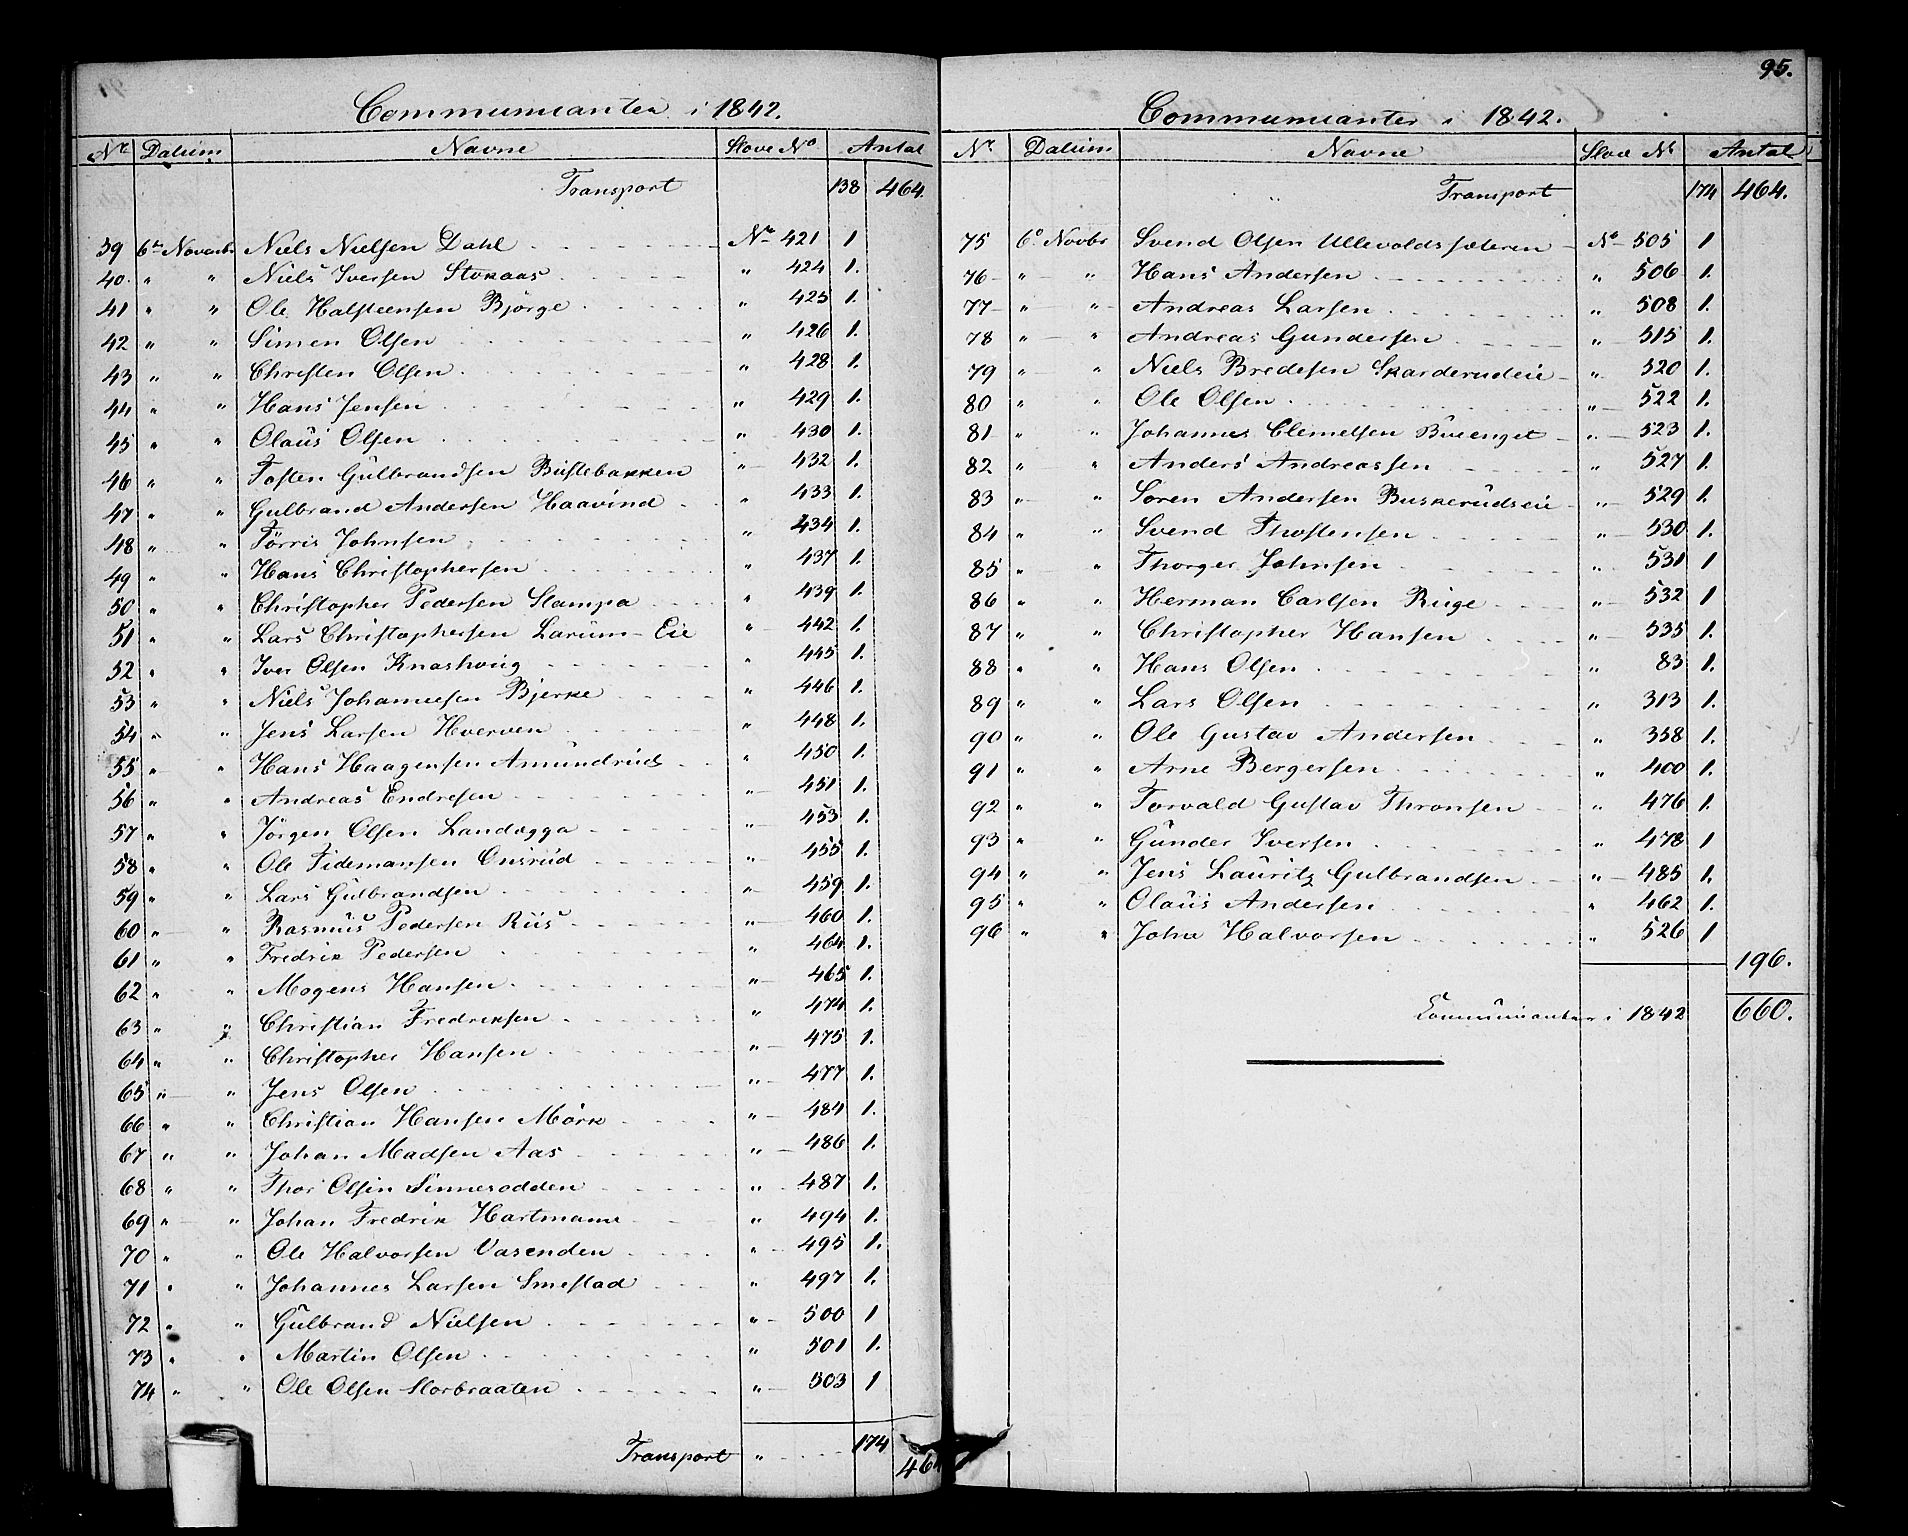 Communicanter i 1842.
Nr. Datum Navne Slave No Antal
Transport 138 464.
39 6te Novembr Niels Nielsen Dahl No 421 1
40 " " Niels Iversen Stokaas " 424 1.
41 " " Ole Halsteensen Bjørge " 425 1.
42 " " Simen Olsen " 426 1.
43 " " Christen Olsen " 428 1.
44 " " Hans Jensen " 429 1.
45 " " Olaus Olsen " 430 1.
46 " " Tosten Gulbrandsen Bustebakken " 432 1.
47 " " Gulbrand Andersen Haavind " 433 1.
48 " " Tørris Johnsen " 434 1.
49 " " Hans Christophersen " 437 1.
50 " " Christopher Pedersen Slampa " 439 1.
51 " " Lars Christophersen Larum-Eie " 442 1.
52 " " Iver Olsen Knashoug " 445 1.
53 " " Niels Johannesen Bjerke " 446 1.
54 " " Jens Larsen Hverven " 448 1.
55 " " Hans Haagensen Amundrud " 450 1.
56 " " Andreas Endresen " 451 1.
57 " " Jörgen Olsen Landøgga " 453 1.
58 " " Ole Tidemansen Onsrud " 455 1.
59 " " Lars Gulbrandsen " 459 1.
60 " " Rasmus Pedersen Riis " 460 1.
61 " " Fredrik Pedersen " 464 1.
62 " " Mogens Hansen " 465 1.
63 " " Christian Fredriksen " 474 1.
64 " " Christopher Hansen " 475 1.
65 " " Jens Olsen " 477 1.
66 " " Christian Hansen Mörk " 484 1.
67 " " Johan Madsen Aas " 486 1.
68 " " Thor Olsen Sinnesodden " 487 1.
69 " " Johan Fredrik Hartmann " 494 1.
70 " " Ole Halvorsen Vasenden " 495 1.
71 " " Johannes Larsen Smestad " 497 1.
72 " " Gulbrand Nielsen " 500 1
73 " " Martin Olsen " 501 1.
74 " " Ole Olsen Storbraaten " 503 1
Transport " 174 464
95.
Communicanter i 1842.
Nr. Datum Navne Slave No Antal
Transport 174 464.
75 6te Novbr Svend Olsen Ullevoldssæteren No 505 1
76 " " Hans Andersen " 506 1.
77 " " Andreas Larsen " 508 1.
78 " " Andreas Gundersen " 515 1.
79 " " Niels Bredesen Skarderudeie " 520 1.
80 " " Ole Olsen " 522 1.
81 " " Johannes Clemetsen Bueenget " 523 1.
82 " " Anders Andreassen " 527 1.
83 " " Søren Andersen Buskerudseie " 529 1.
84 " " Svend Thostensen " 530 1.
85 " " Thorger Johnsen " 531 1
86 " " Herman Carlsen Ruge " 532 1
87 " " Christopher Hansen " 535 1.
88 " " Hans Olsen " 83 1.
89 " " Lars Olsen " 313 1.
90 " " Ole Gustav Andersen " 358 1.
91 " " Arne Bergersen " 400 1.
92 " " Torvald Gustav Thronsen " 476 1.
93 " " Gunder Iversen " 478 1
94 " " Jens Lauritz Gulbrandsen " 485 1.
95 " " Olaus Andersen " 462 1.
96 " " John Halvorsen " 526 1
196.
Communicanter i 1842 660.